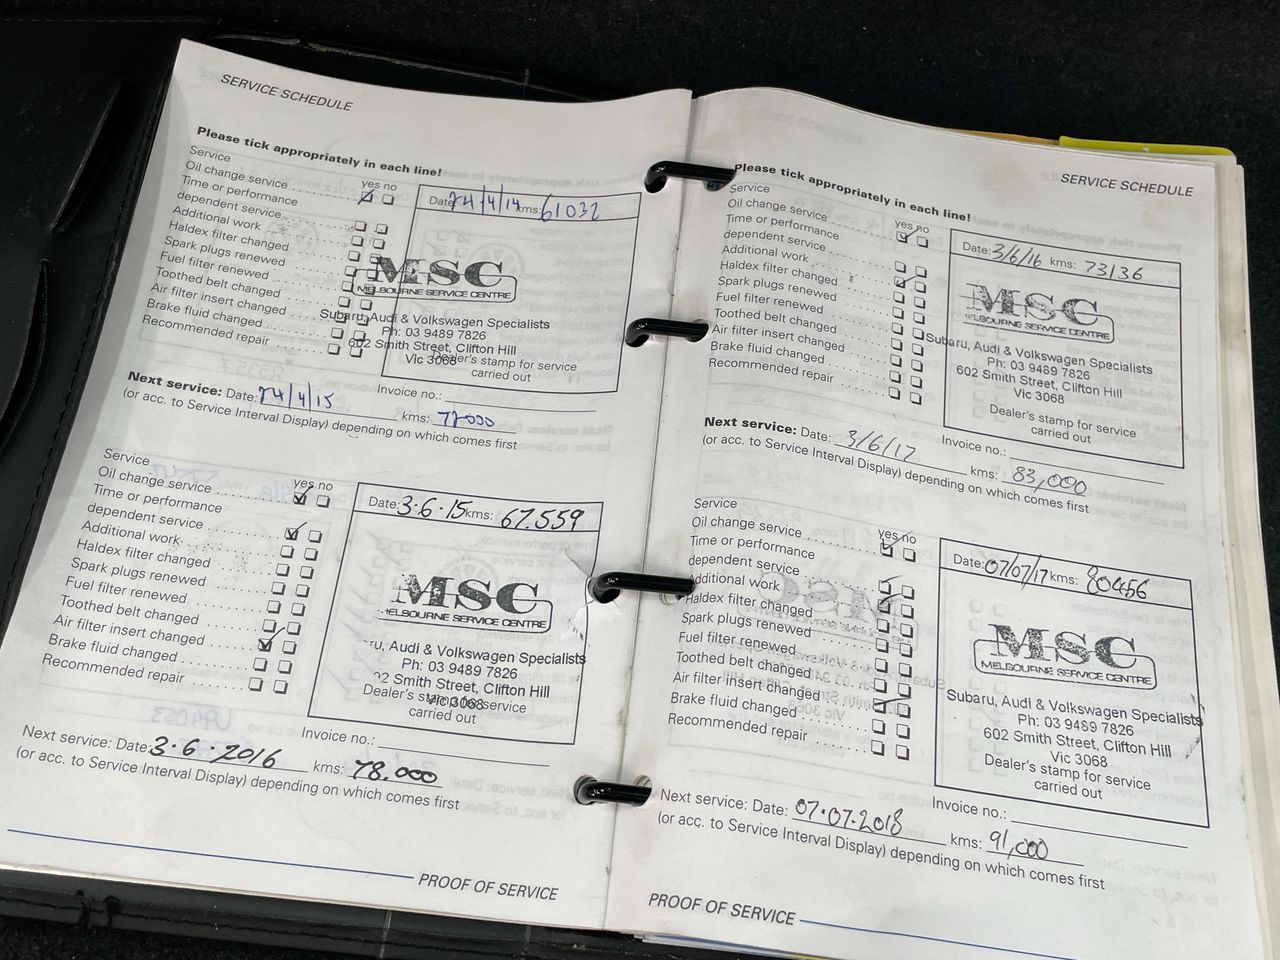 SERVICE SCHEDULE
Please tick appropriately in each line!
Service
yes no
Oil change service
Time or performance
dependent service
Additional work
Haldex filter changed
Spark plugs renewed
Fuel filter renewed
Toothed belt changed
Air filter insert changed
Brake fluid changed
Recommended repair
Date: 24/4/14 kms: 61032
MSC
MELBOURNE SERVICE CENTRE
Subaru, Audi & Volkswagen Specialists
Ph: 03 9489 7826
602 Smith Street, Clifton Hill
Vic 3068
Dealer's stamp for service
carried out
Invoice no.:
Next service: Date: 24/4/15 kms:
(or acc. to Service Interval Display) depending on which comes first
Service
yes no
Oil change service
Time or performance
dependent service
Additional work
Haldex filter changed
Spark plugs renewed
Fuel filter renewed
Toothed belt changed
Air filter insert changed
Brake fluid changed
Recommended repair
Date: 3-6-15 kms: 67.559
MSC
MELBOURNE SERVICE CENTRE
Audi & Volkswagen Specialists
Ph: 03 9489 7826
Smith Street, Clifton Hill
Vic 3068
Dealer's stamp for service
carried out
Invoice no.:
Next service: Date: 3-6-2016 kms: 78,000
(or acc. to Service Interval Display) depending on which comes first
PROOF OF SERVICE
SERVICE SCHEDULE
Please tick appropriately in each line!
Service
yes no
Oil change service
Time or performance
dependent service
Additional work
Haldex filter changed
Spark plugs renewed
Fuel filter renewed
Toothed belt changed
Air filter insert changed
Brake fluid changed
Recommended repair
Date: 3/6/16 kms: 73136
MSC
MELBOURNE SERVICE CENTRE
Subaru, Audi & Volkswagen Specialists
Ph: 03 9489 7826
602 Smith Street, Clifton Hill
Vic 3068
Dealer's stamp for service
carried out
Invoice no.:
Next service: Date: 3/6/17 kms: 83,000
(or acc. to Service Interval Display) depending on which comes first
Service
yes no
Oil change service
Time or performance
dependent service
Additional work
Haldex filter changed
Spark plugs renewed
Fuel filter renewed
Toothed belt changed
Air filter insert changed
Brake fluid changed
Recommended repair
Date: 07/07/17 kms: 80456
MSC
MELBOURNE SERVICE CENTRE
Subaru, Audi & Volkswagen Specialists
Ph: 03 9489 7826
602 Smith Street, Clifton Hill
Vic 3068
Dealer's stamp for service
carried out
Invoice no.:
Next service: Date: 07.07.2018 kms: 91,000
(or acc. to Service Interval Display) depending on which comes first
PROOF OF SERVICE